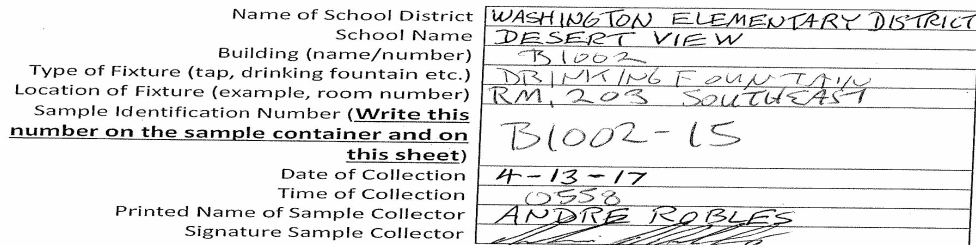 Name of School District WASHINGTON ELEMENTARY DISTRICT
School Name DESERT VIEW
Building (name/number) B1002
Type of Fixture (tap, drinking fountain etc.) DRINKING FOUNTAIN
Location of Fixture (example, room number) RM. 203 SOUTHEAST
Sample Identification Number (Write this
number on the sample container and on
this sheet) B1002-15
Date of Collection 4-13-17
Time of Collection 0558
Printed Name of Sample Collector ANDRE ROBLES
Signature Sample Collector